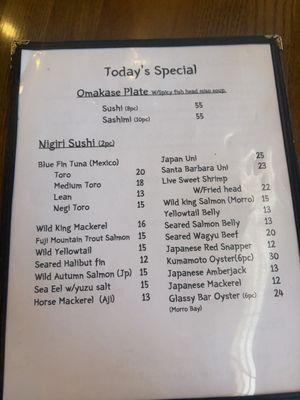 Today's Special
Omakase Plate W/Spicy fish head miso soup.
Sushi (8pc) 55
Sashimi (10pc) 55
Nigiri Sushi (2pc)
Blue Fin Tuna (Mexico)
Toro 20
Medium Toro 18
Lean 13
Negi Toro 15
Wild King Mackerel 16
Fuji Mountain Trout Salmon 15
Wild Yellowtail 15
Seared Halibut fin 12
Wild Autumn Salmon (Jp) 15
Sea Eel w/yuzu salt 15
Horse Mackerel (Aji) 13
Japan Uni 25
Santa Barbara Uni 23
Live Sweet Shrimp
W/Fried head 22
Wild king Salmon (Morro) 15
Yellowtail Belly 13
Seared Salmon Belly 13
Seared Wagyu Beef 20
Japanese Red Snapper 12
Kumamoto Oyster(6pc) 30
Japanese Amberjack 13
Japanese Mackerel 12
Glassy Bar Oyster (6pc) 24
(Morro Bay)